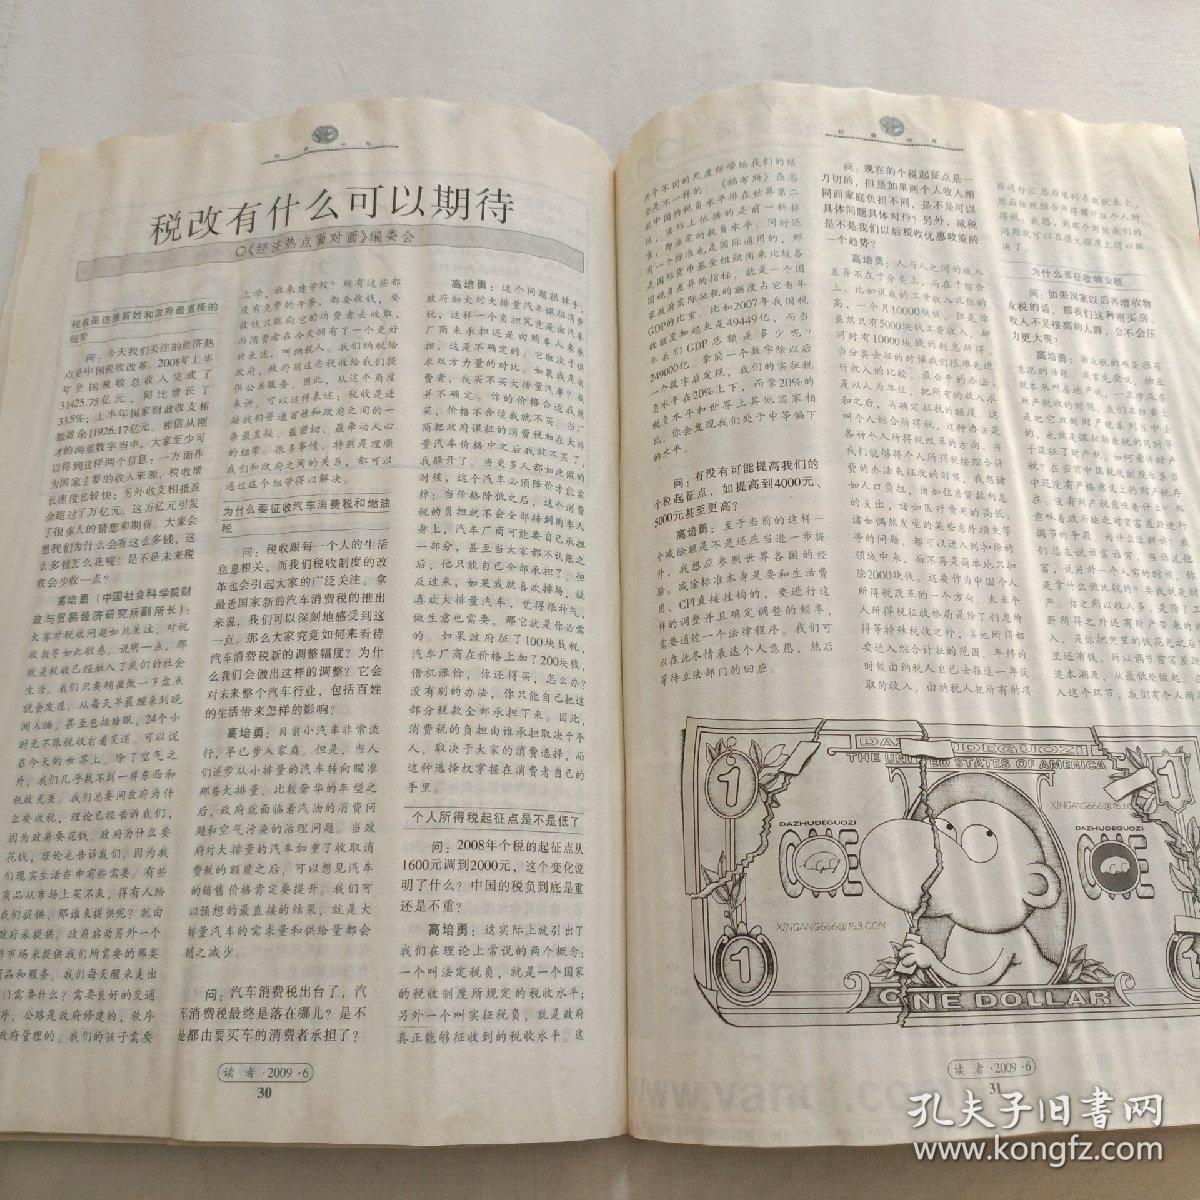 税改有什么可以期待
○《经济热点面对面》编委会
税收是连接百姓和政府最直接的
纽带
问:今天我们关注的经济热
点是中国税收改革。2008年上半
年全国税收总收入完成了
31425.75亿元,同比增长了
33.5%;上半年国家财政收支相
抵盈余11926.17亿元。相信从刚
才的两组数字当中,大家至少可
以得到这样两个信息:一方面作
为国家主要的收入来源,税收增
长速度比较快;另外收支相抵盈
余超过了万亿元,这万亿元引发
了很多人的猜想和期待。大家会
想我们为什么会有这么多钱,这
么多钱怎么花呢?是不是未来税
收会少收一点?
高培勇(中国社会科学院财
政与贸易经济研究所副所长):
大家对税收问题如此关注,对税
收数字如此敏感,说明一点,那
就是税收已经融入了我们的社会
生活。我们只要稍微做一下盘点
就会发现,从每天早晨醒来到晚
间入睡,甚至包括睡眠,24个小
时无不跟税收打着交道。可以说
在今天的世界上,除了空气之
外,我们几乎找不到一样东西和
税收无关。我们总要问政府为什
么要收税,理论已经告诉我们,
因为政府要花钱。政府为什么要
花钱,理论也告诉我们,因为我
们现实生活当中有些需要。有些
商品从市场上买不来,得有人给
我们提供。那谁来提供呢?就由
政府来提供。政府启动另外一个
非市场来提供我们所需要的那类
商品和服务。我们每天醒来走出
门需要什么?需要良好的交通
序,公路是政府修建的,秩序
政府管理的。我们的孩子需要
上学,谁来建学校?所有这些都
没有免费的午餐,都要收钱,要
收钱只能向它的消费者去收取,
而消费者在今天拥有了一个更好
的表述,叫纳税人。我们纳税给
政府,政府用这些税收给我们提
供公共服务。因此,从这个角度
来讲,可以这样表述:税收是连
接我们普通百姓和政府之间的一
条最直接、最密切、最牵动人心
的纽带。很多事情,特别是理顺
我们和政府之间的关系,都可以
通过这个纽带得以解决。
为什么要征收汽车消费税和燃油
税
问:税收跟每一个人的生活
息息相关,而我们税收制度的改
革也会引起大家的广泛关注。拿
最近国家新的汽车消费税的推出
来说,我们可以深刻地感受到这
一点。那么大家究竟如何来看待
汽车消费税新的调整幅度?为什
么我们会做出这样的调整?它会
对未来整个汽车行业,包括百姓
的生活带来怎样的影响?
高培勇:目前小汽车非常流
行,早已步入家庭。但是,当人
们逐步从小排量的汽车转向瞄准
那些大排量、比较奢华的车型之
后,政府就面临着汽油的消费问
题和空气污染的治理问题。当政
府对大排量的汽车加重了收取消
费税的额度之后,可以想见汽车
的销售价格肯定要提升。我们可
以预想的最直接的结果,就是大
排量汽车的需求量和供给量都会
随之减少。
问:汽车消费税出台了,汽
车消费税最终是落在哪儿?是不
是都由要买车的消费者承担了?
高培勇:这个问题很棘手。
政府如大对大排量汽车课征消费
税,这样一个负担究竟是由汽车
厂商来承担还是由购车人来承
担,这是不确定的。它取决于供
求双方力量的对比。如果我是消
费者,我买不买大排量汽车?我
并不确定。你的价格合适我就
买,价格不合适我就不买。当厂
商把政府课征的消费税加在大排
量汽车价格中之后我就不买了,
我躲开了。当更多人都如此做的
时候,这个汽车必须降价才能卖
掉;当价格降低之后,这个消费
税的负担就不会全部转嫁到购车人
身上,汽车厂商可能要自己承担
一部分,甚至当大家都不认账之
后,他只能自己全部承担了。但
反过来,如果我就喜欢排场,就
喜欢大排量汽车,觉得很神气,
做生意也需要,那它就是你必需
的。如果政府征了100块钱税,
汽车厂商在价格上加了200块钱,
借机涨价,你还得买,怎么办?
没有别的办法,你只能自己把这
部分税款全部承担下来。因此,
消费税的负担由谁承担取决于个
人,取决于大家的消费选择,而
这种选择权掌握在消费者自己的
手里。
个人所得税起征点是不是低了
问:2008年个税的起征点从
1600元调到2000元,这个变化说
明了什么?中国的税负到底是重
还是不重?
高培勇:这实际上就引出了
我们在理论上常说的两个概念:
一个叫法定税负,就是一个国家
的税收制度所规定的税收水平;
另外一个叫实征税负,就是政府
真正能够征收到的税收水平。这
读者·2009·6
30
两个不同的尺度所带给我们的结
论是不一样的。《福布斯》在总
说中国的税负水平排在世界第二
位,实际上依据的是前一种标
准,即法定的税负水平。同时还
有一个标准也是国际通用的,那
是国际货币基金组织用来比较各
国税负差异的指标,就是一个国
家政府实际征税的额度占它当年
GDP的比重。比如2007年我国税
收额度加起来是49449亿,而当
年我们GDP总额是多少呢?
249000亿。拿前一个数字除以后
一个数字后发现,我们的实征税
负水平在20%上下,而拿20%的
税负水平和世界上其他国家相
比,你会发现我们处于中等偏下
的水平。
问:有没有可能提高我们的
个税起征点,如提高到4000元、
5000元甚至更高?
高培勇:至于当前的这样一
个减除额是不是还应当进一步提
升,我想应参照世界各国的经
验。减除标准本身是要和生活费
用、CPI直接挂钩的,要进行这
样的调整并且确定调整的频率,
需要通过一个法律程序。我们可
以在此尽情表达个人意愿,然后
等待立法部门的回应。
问:现在的个税起征点是一
刀切的,但是如果两个人收入相
同而家庭负担不同,是不是可以
具体问题具体对待?另外,减税
是不是我们以后税收优惠政策的
一个趋势?
高培勇:人与人之间的收入
差异不在于分类上,而在于综合
上。比如说我的工资收入比你的
高,一个月10000块钱,但是你
虽然只有5000块钱工资收入,却
同时有10000块钱的利息所得,
当分类去征的时候我们很难先进
行收入的比较。最公平的办法,
是以人为单位,把所有的收入求
和之后,再确定征税的额度,这
叫个人综合所得税,这种办法是
各种个人所得税改革的方向。当
我们能够将个人所得税按综合计
费的办法来征收的时候,我想诸
如人口负担,诸如住房贷款利息
的支出,诸如医疗费用的高低,
诸如偶然发生的某些意外损失等
等的问题,都可以进入到扣除的
领域中来,而不再是简单地只扣
除2000块钱。这要作为中国个人
所得税改革的一个方向。未来个
人所得税征收格局是除了利息所
得等特殊税收之外,其他所得都
要进入综合计征的范围,年终的
时候由纳税人自己去报这一年获
取的收入,由纳税人把所有的项
目进行汇总后填列在报税表上,
然后按照综合所得额计征个人所
得税。我想,到那个时候我们的
问题就可以在很大程度上得以解
决了。
为什么要征收物业税
问:如果国家以后再增收物
业税的话,那我们这种刚买房、
收入不是很高的人群,会不会压
力更大呢?
读者·2009·6
31
DAZHUDEGUOZI
THE UNITED STATES OF AMERICA
1
1
1
DAZHUDEGUOZI
ONE
XINGANG666@163.COM
XINGANG666@163.COM
DAZHUDEGUOZI
ONE
ONE DOLLAR
孔夫子旧书网
www.kongfz.com